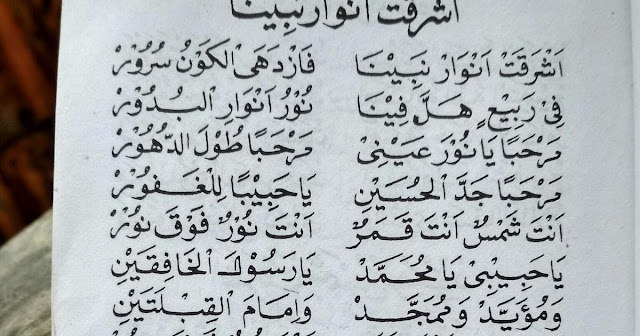 اشرقت انوار نبينا
اَشْرَقَتْ اَنْوَارْ نَبِيْنَا فَازْدَهَى الْكَوْنُ سُرُوْرْ
فِىْ رَبِيْعٍ هَلَّ فِيْنَا نُوْرُ اَنْوَارِ الْبُدُوْرْ
مَرْحَبًا يَا نُوْرَ عَيْنِىْ مَرْحَبًا طُوْلَ الدُّهُوْرْ
مَرْحَبًا جَدَّ الْحُسَيْنِ يَا حَبِيْبًا لِلْغَفُوْرْ
اَنْتَ شَمْسٌ اَنْتَ قَمَرٌ اَنْتَ نُوْرٌ فَوْقَ نُوْرْ
يَا حَبِيْبِىْ يَا مُحَمَّدْ يَا رَسُوْلَ الْخَافِقَيْنِ
وَمُؤَيَّدْ وَمُمَجَّدْ وَاِمَامَ الْقِبْلَتَيْنِ